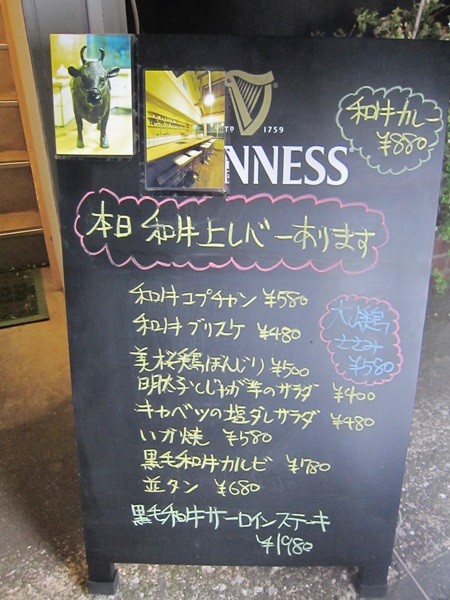 1759
NNESS
和牛カレー
¥880
本日 和牛上レバーあります
和牛コプチャン ¥580
和牛ブリスケ ¥480
大鶏
ささみ
¥580
美桜鶏ぼんじり ¥500
明太子とじゃが芋のサラダ ¥400
キャベツの塩ダレサラダ ¥480
いか焼 ¥580
黒毛和牛カルビ ¥780
並タン ¥680
黒毛和牛サーロインステーキ
¥1980